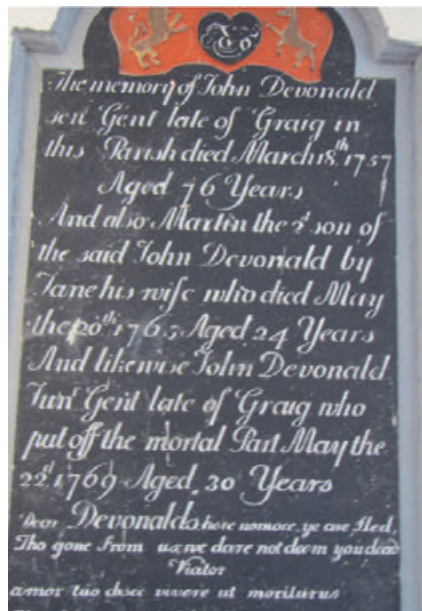 To
The memory of John Devonald
senr Gent late of Graig in
this Parish died March 18th 1757
Aged 76 Years
And also Martin the 2d son of
the said John Devonald by
Jane his wife who died May
the 20th 1765 Aged 24 Years
And likewise John Devonald
Junr Gent late of Graig who
put off the mortal Part May the
22d 1769 Aged 30 Years
Dear Devonalds here nomore ye are fled,
Tho gone from us we dare not deem you dead
Viator
amor tuo disce vivere ut moriturus